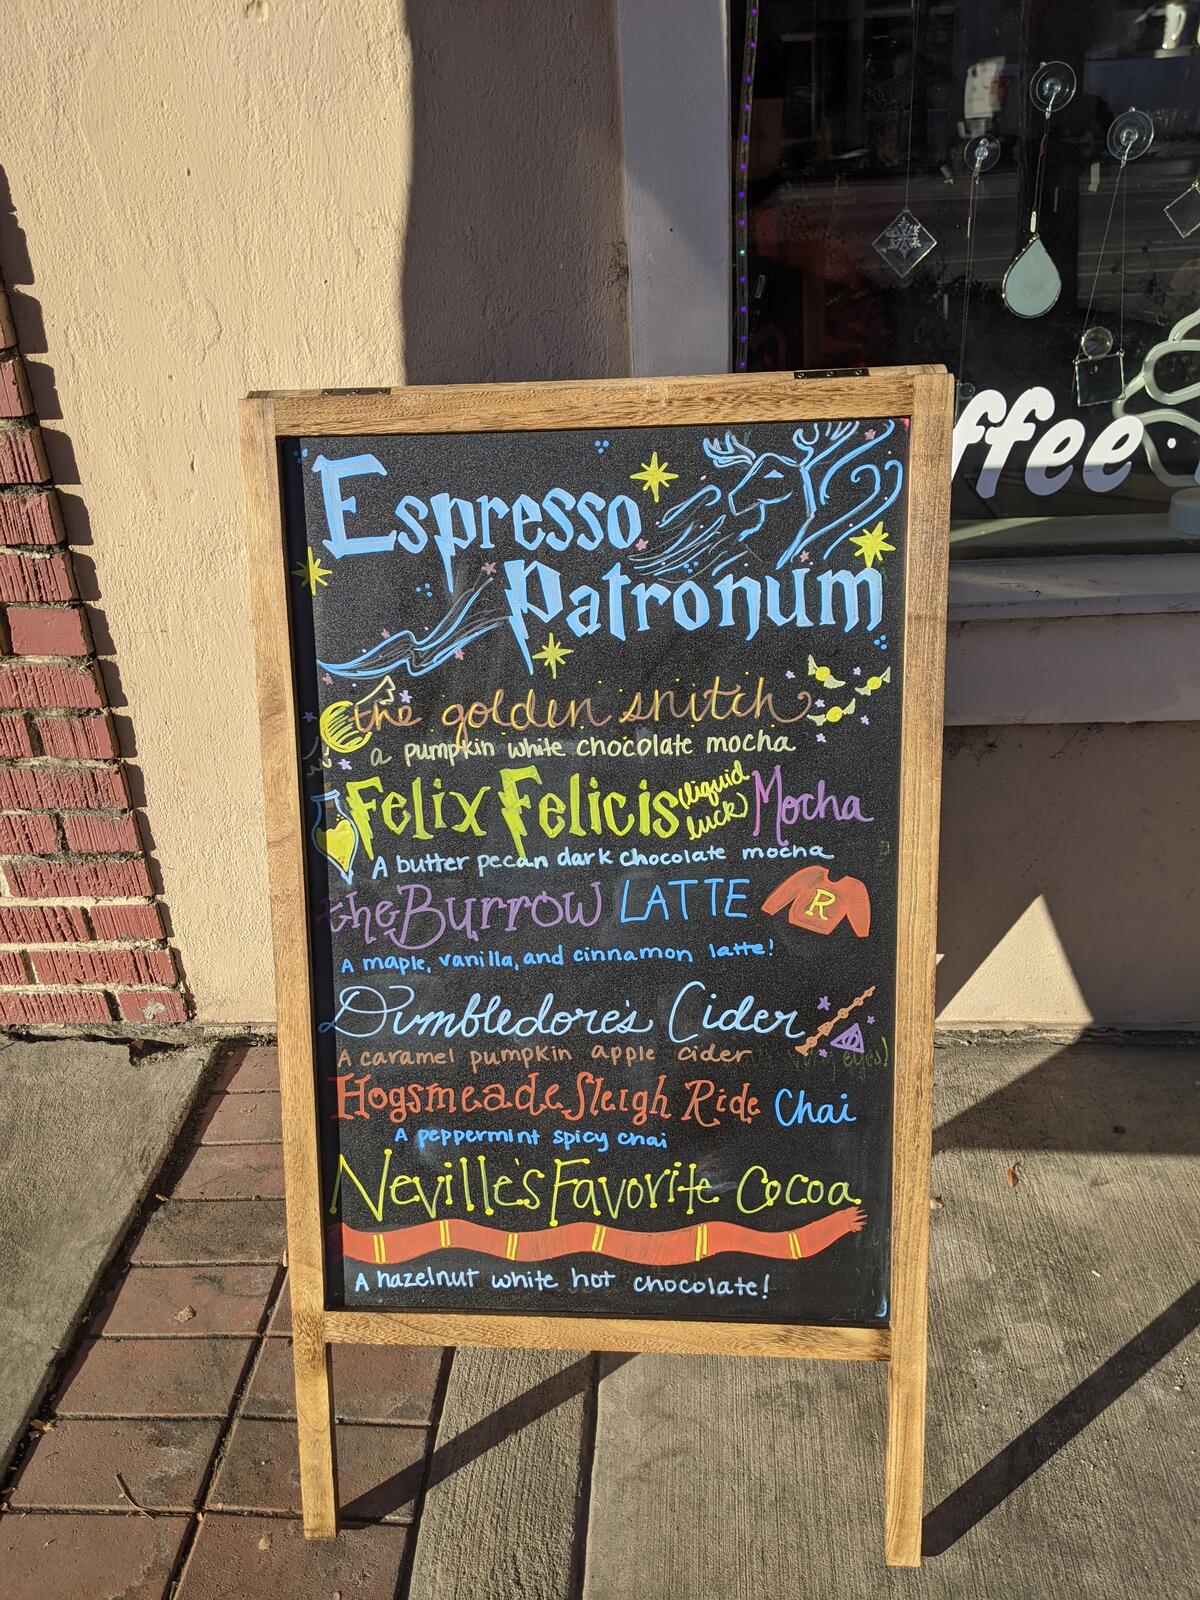 Espresso
Patronum
the golden snitch
a pumpkin white chocolate mocha
Felix Felicis (liquid luck) Mocha
A butter pecan dark chocolate mocha
the Burrow LATTE
R
A maple, vanilla, and cinnamon latte!
Dumbledore's Cider
A caramel pumpkin apple cider
Hogsmeade Sleigh Ride Chai
A peppermint spicy chai
Neville's Favorite Cocoa
A hazelnut white hot chocolate!
ffee